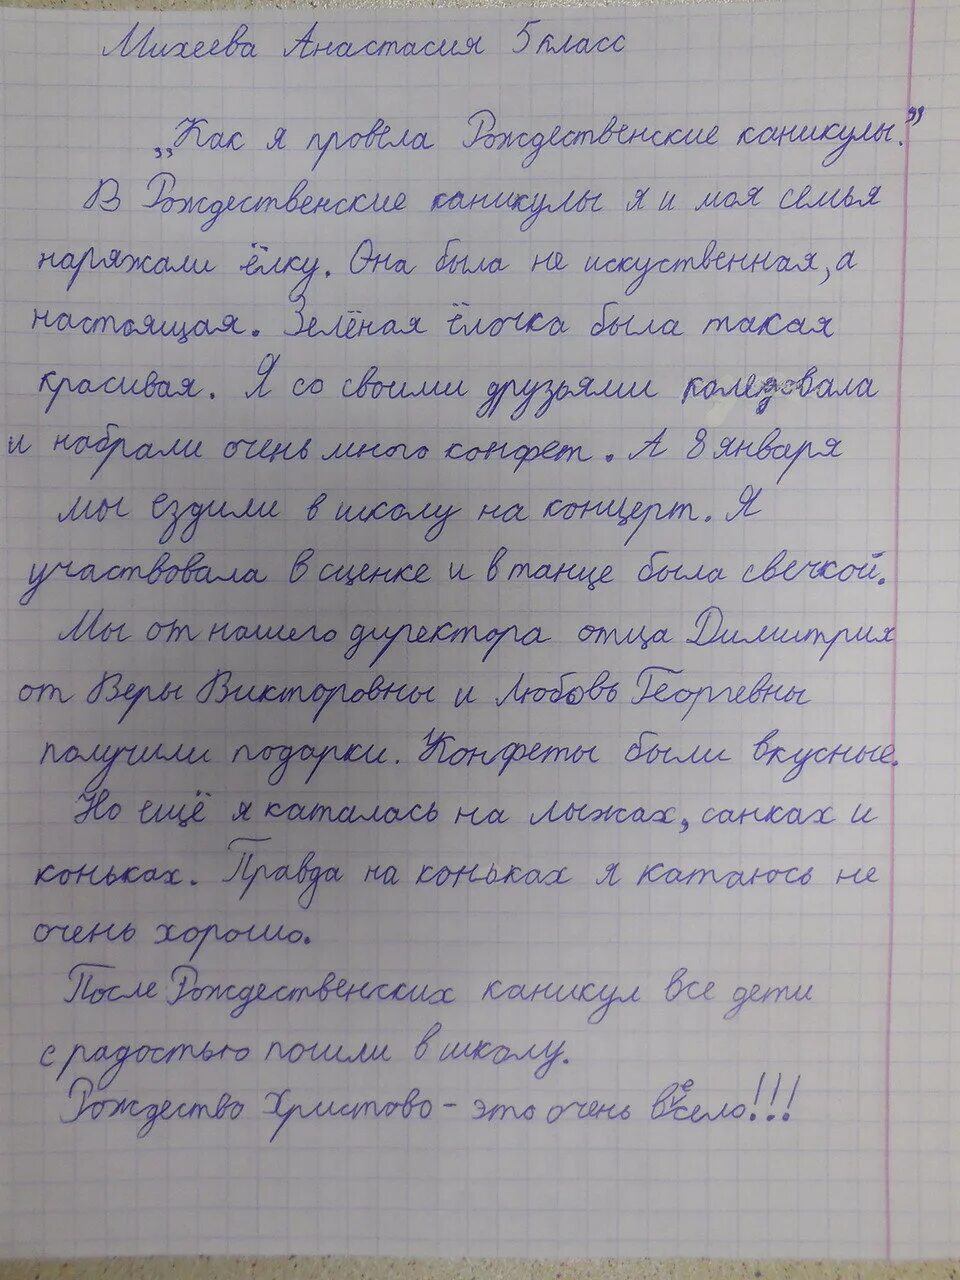 Михеева Анастасия 5 класс
„Как я провела Рождественские каникулы."
В Рождественские каникулы я и моя семья
наряжали ёлку. Она была не искуственная, а
настоящая. Зелёная ёлочка была такая
красивая. Я со своими друзьями коледовала
и набрали очень много конфет. А 8 января
мы ездили в школу на концерт. Я
участвовала в сценке и в танце была свечкой.
Мы от нашего директора отца Димитрия
от Веры Викторовны и Любовь Георгевны
получили подарки. Конфеты были вкусные.
Но ещё я каталась на лыжах, санках и
коньках. Правда на коньках я катаюсь не
очень хорошо.
После Рождественских каникул все дети
с радостью пошли в школу.
Рождество Христово - это очень весело!!!